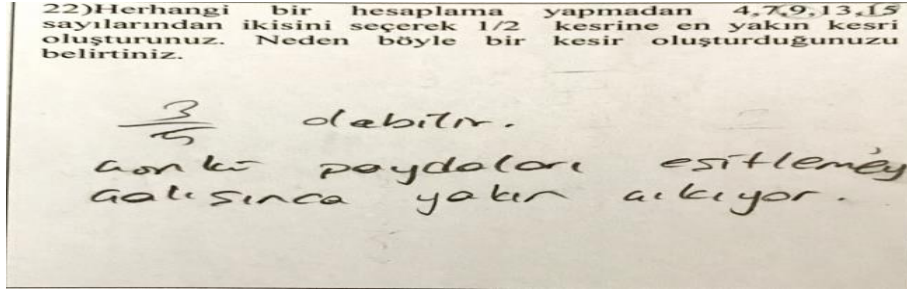 22)Herhangi bir hesaplama yapmadan 4,7,9,13,15
sayılarından ikisini seçerek 1/2 kesrine en yakın kesri
oluşturunuz. Neden böyle bir kesir oluşturduğunuzu
belirtiniz.
3/5 olabilir.
Çünkü paydaları eşitlemey
çalışınca yakın çıkıyor.